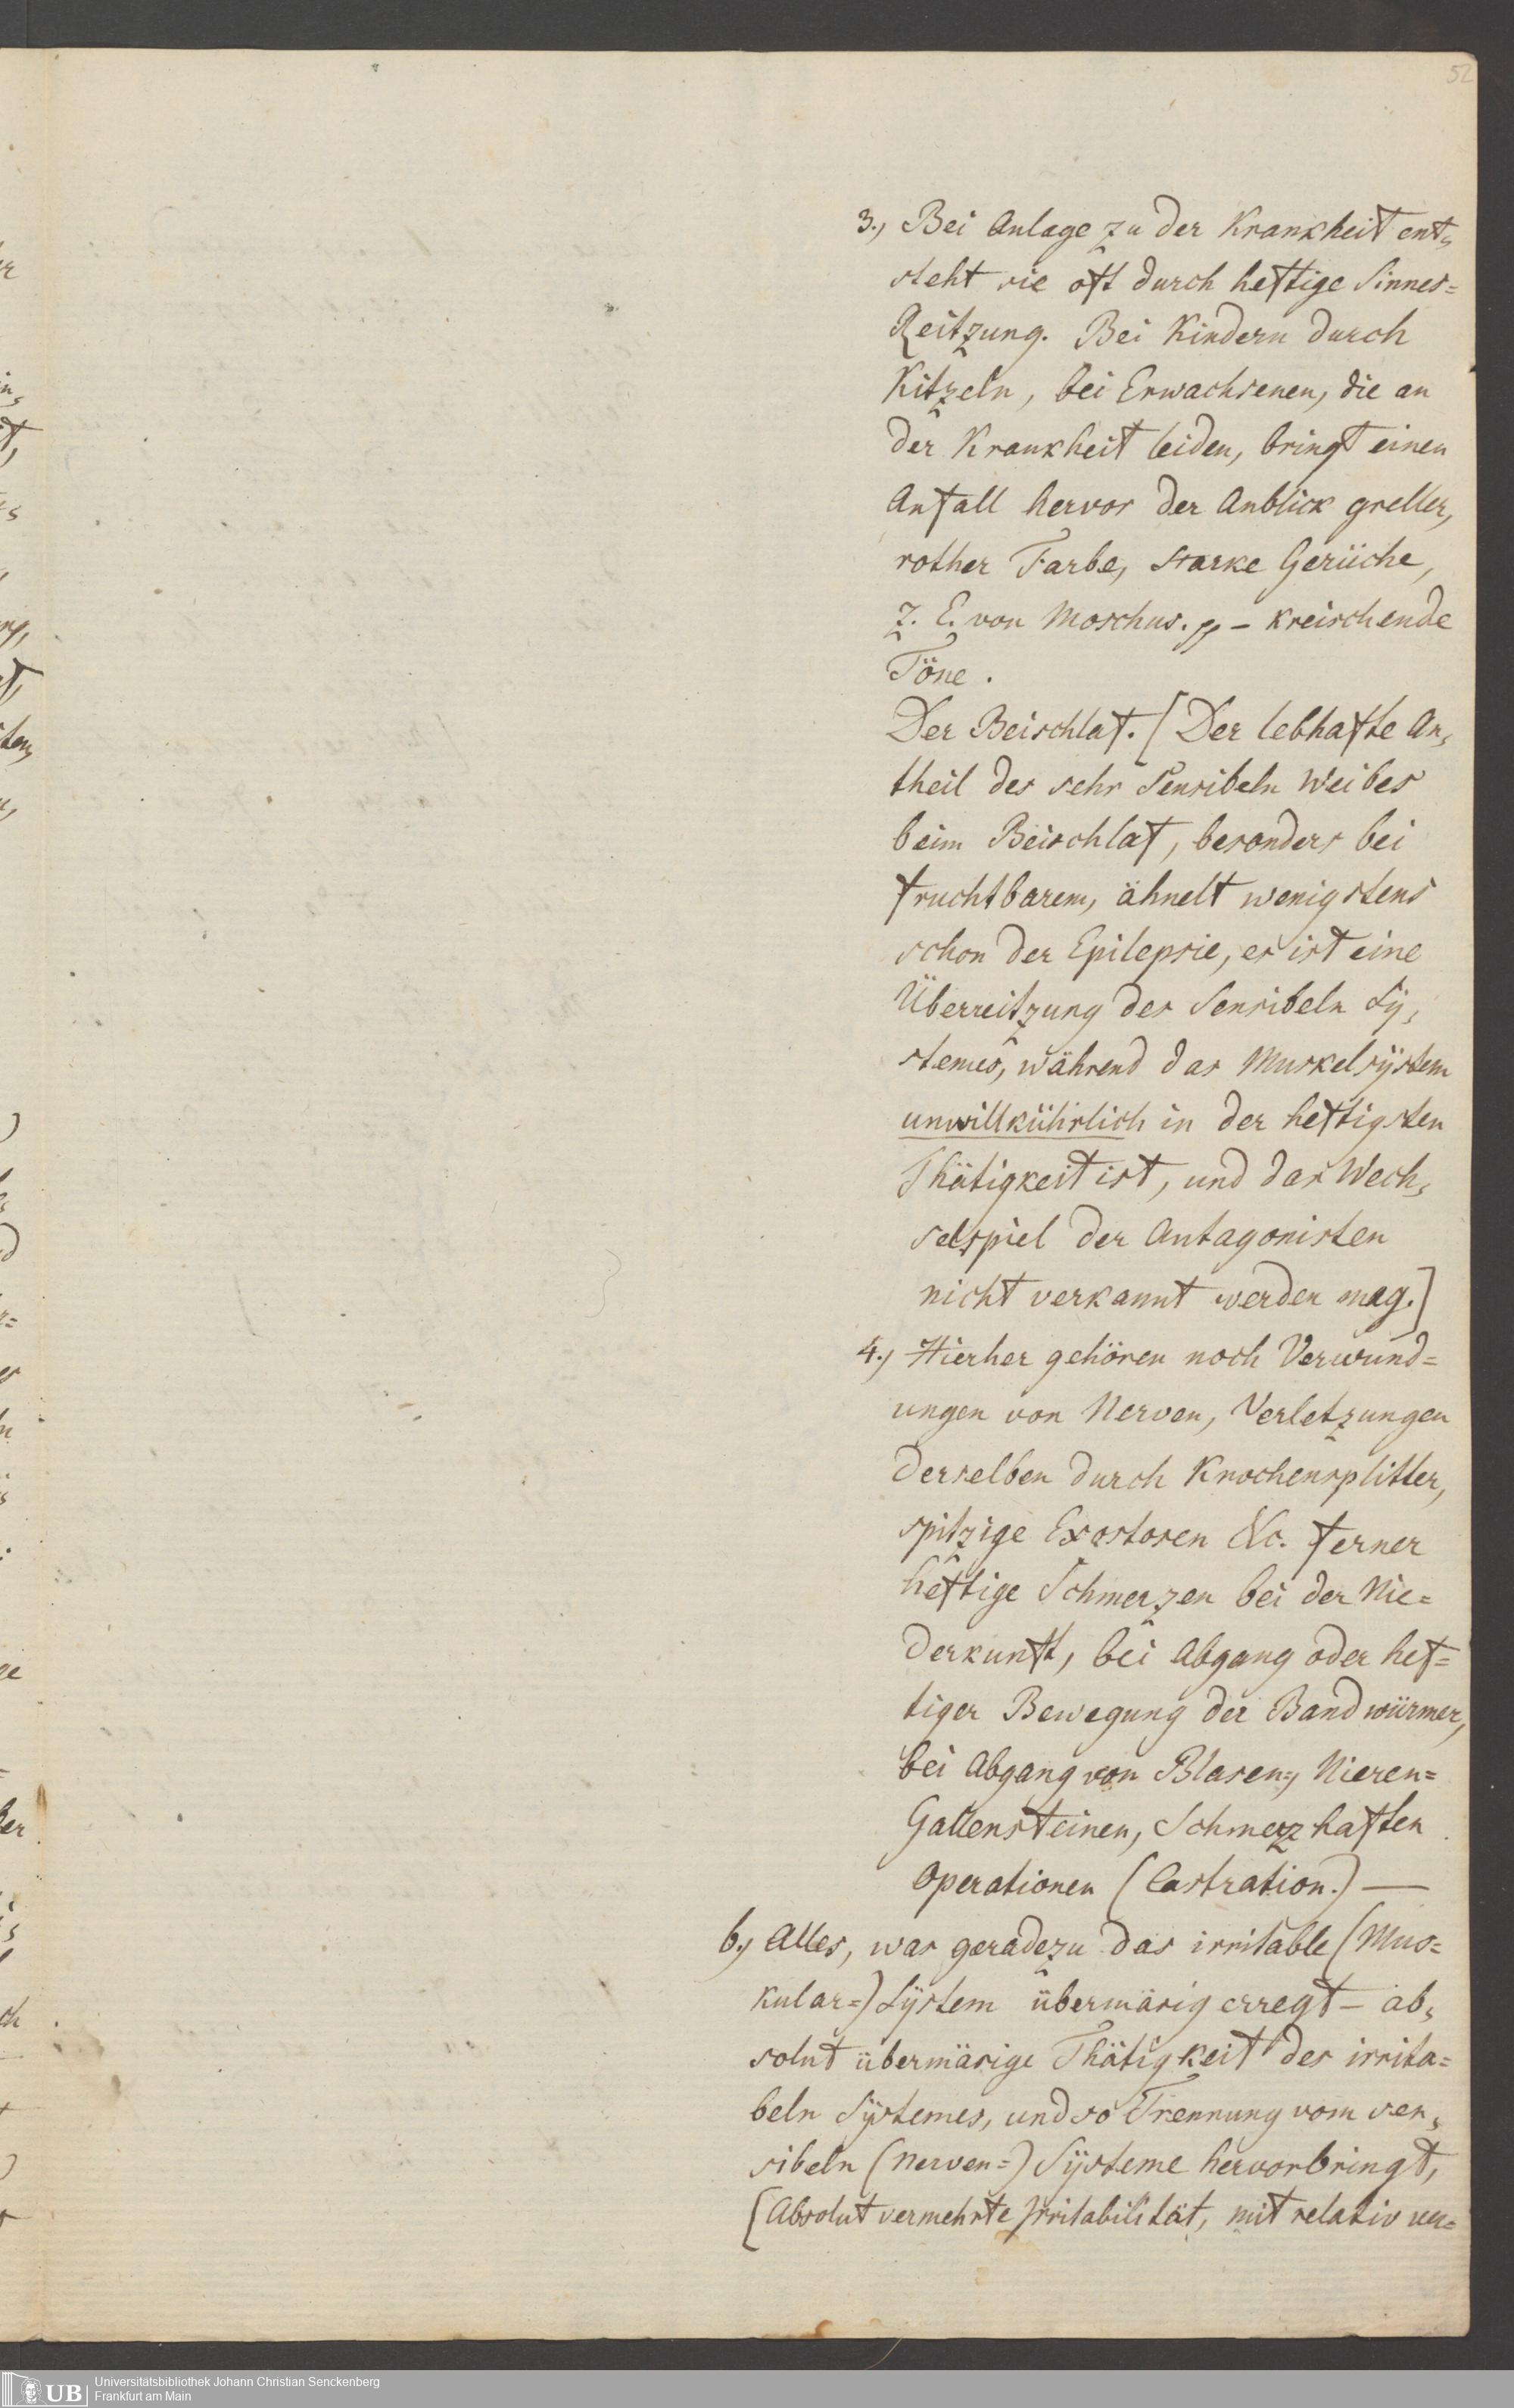 52
3., Bei Anlage zu der Krankheit ent„
steht sie oft durch heftige Sinnes=
Reitzung. Bei Kindern durch
Kitzeln, bei Erwachsenen, die an
der Krankheit leiden, bringt einen
Anfall hervor der Anblick greller,
rother Farbe, starke Gerüche,
z. E. von Moschus. pp – kreischende
Töne.
Der Beischlaf. [Der lebhafte An„
theil des sehr sensibeln Weibes
beim Beischlaf, besonders bei
fruchtbarem, ähnelt wenigstens
schon der Epilepsie, es ist eine
Überreitzung des Sensibeln Sÿ„
stemes, während das Muskelsÿstem
unwillkührlich in der heftigsten
Thätigkeit ist, und das Wech„
selspiel der Antagonisten
nicht verkannt werden mag.]
4., Hierher gehören noch Verwund=
ungen von Nerven, Verletzungen
derselben durch Knochensplitter,
spitzige Exostosen &c. ferner
heftige Schmerzen bei der Nie=
derkunft, bei Abgang oder hef=
tiger Bewegung der Bandwürmer,
bei Abgang von Blasen=, Nieren=
Gallensteinen, Schmerzhaften
Operationen (Castration.) —
b., Alles, was geradezu das irritable (Mus=
kular=) Sÿstem übermäsig erregt – ab„
solut übermäsige Thätigkeit des irrita=
beln Sÿstemes, und so Trennung vom sen„
sibeln (Nerven=) Sÿsteme hervorbringt,
[Absolut vermehrte Irritabilität, mit relativ ver=
UB
Universitätsbibliothek Johann Christian Senckenberg
Frankfurt am Main